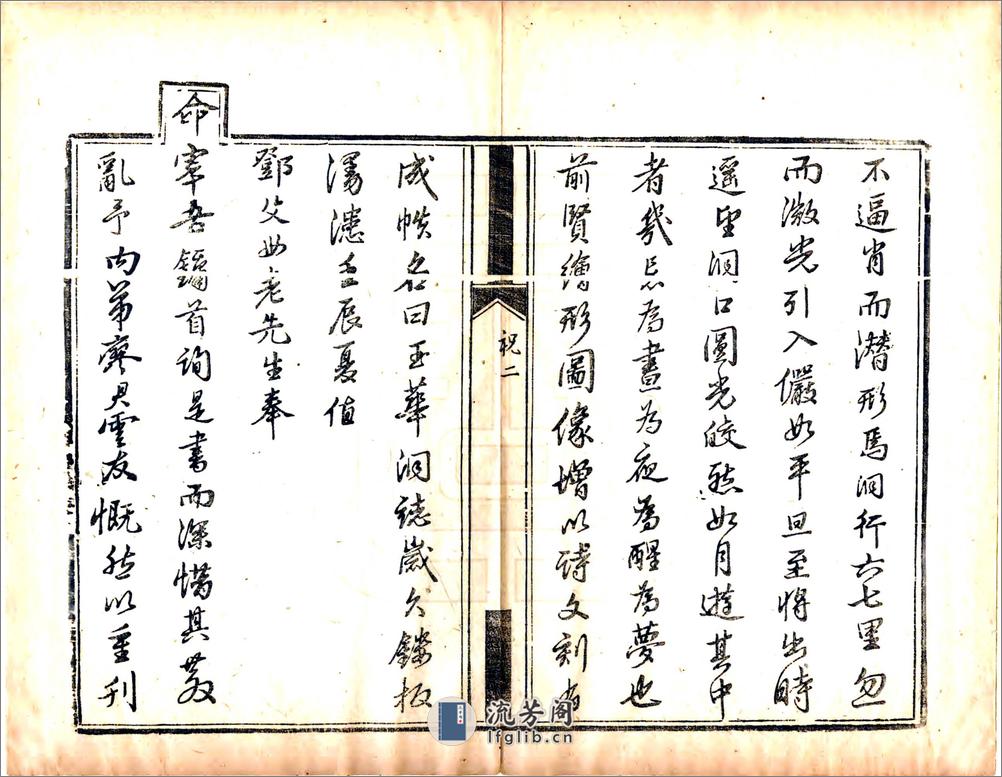 不逼肖而潛形焉洞行六七里忽
而微光引入儼如平旦至將出時
遥望洞口圓光皎然如月遊其中
者幾忘為晝為夜為醒為夢也
前賢繪形圖像增以詩文刻者
祝二
成帙名曰玉華洞誌歲久鏤板
漫漶壬辰夏值
鄧父母老先生奉
命宰吾鏞首詢是書而深惜其散
亂予內弟廖君雲友慨然以重刊
流芳阁
lfglib.cn